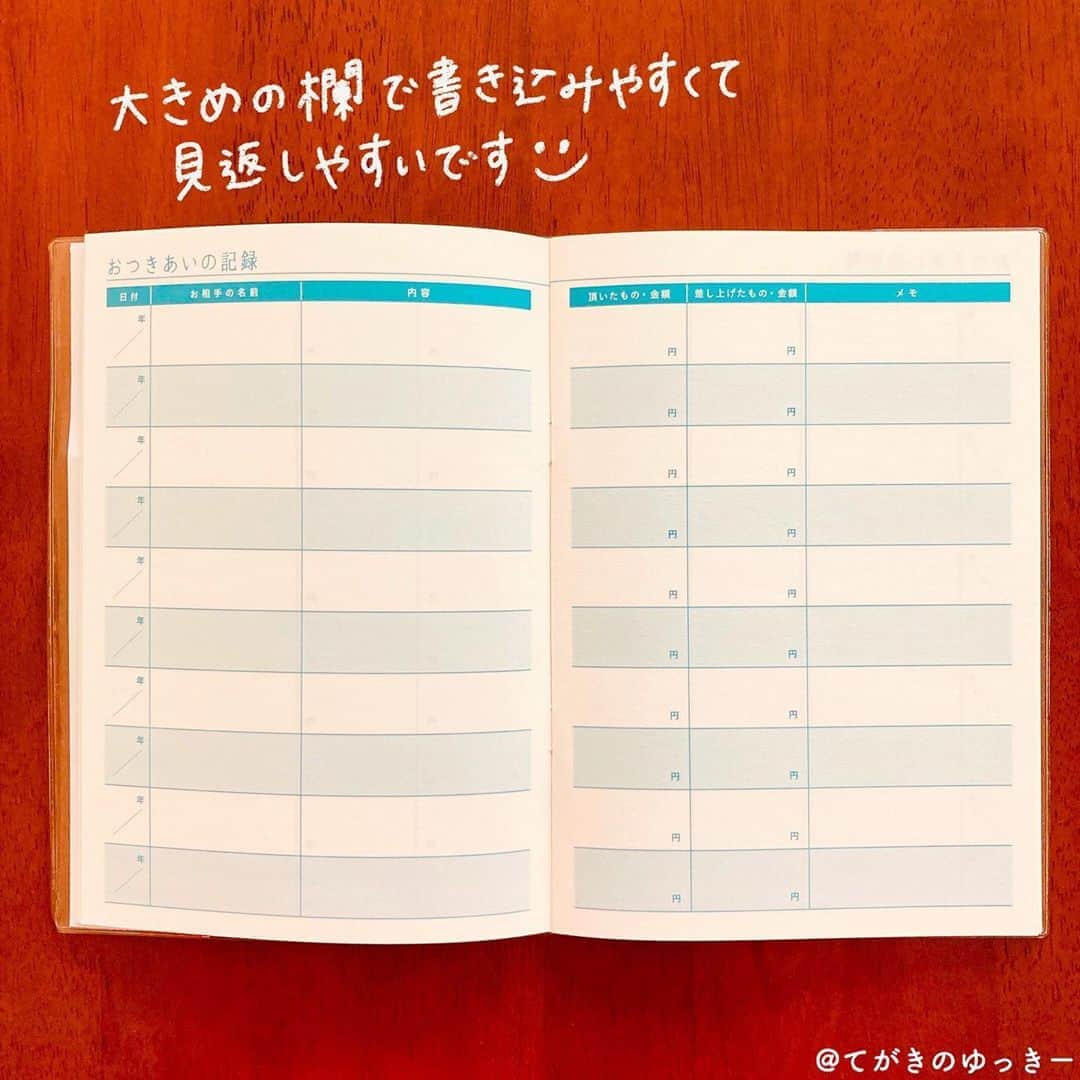 大きめの欄で書き込みやすくて
見返しやすいです
おつきあいの記録
日付 お相手の名前 内容 頂いたもの・金額 差し上げたもの・金額 メモ
年 / 円 円
年 / 円 円
年 / 円 円
年 / 円 円
年 / 円 円
年 / 円 円
年 / 円 円
年 / 円 円
年 / 円 円
年 / 円 円
@てがきのゆっきー